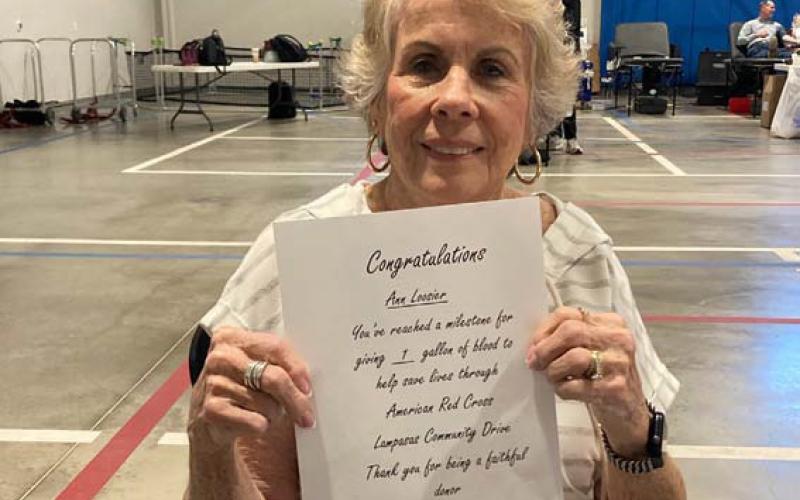 Congratulations
Ann Loosier
You've reached a milestone for
giving 1 gallon of blood to
help save lives through
American Red Cross
Lampasas Community Drive
Thank you for being a faithful
donor